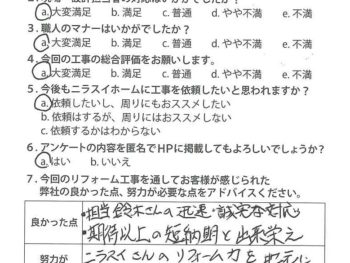 a.大変満足 b.満足 c.普通 d.やや不満 e.不満
3.職人のマナーはいかがでしたか?
a.大変満足 b.満足 c.普通 d.やや不満 e.不満
4.今回の工事の総合評価をお願いします。
a.大変満足 b.満足 c.普通 d.やや不満 e.不満
5.今後もニラスイホームに工事を依頼したいと思われますか?
a.依頼したいし、周りにもおススメしたい
b.依頼はするが、周りにはおススメしない
c.依頼するかはわからない
6.アンケートの内容を匿名でHPに掲載してもよろしいでしょうか?
a.はい b.いいえ
7.今回のリフォーム工事を通してお客様が感じられた
弊社の良かった点、努力が必要な点をアドバイスください。
良かった点
・担当鈴木さんの迅速・誠実な対応
・期待以上の短納期と出来栄え
努力が
ニラスイさんのリフォーム力を